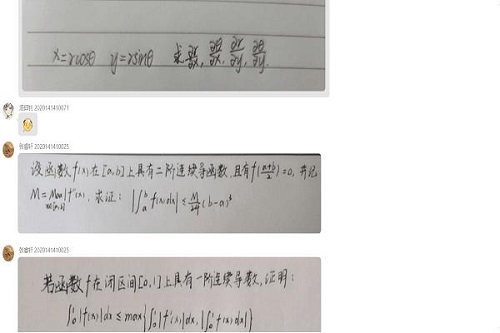 x=rcosθ y=rsinθ 求 ∂r/∂x, ∂θ/∂x, ∂r/∂y, ∂θ/∂y.
2020141410071
2020141410025
设函数f(x)在[a,b]上具有二阶连续导函数,且有f((a+b)/2)=0,并记
M=Max x∈[a,b] |f''(x)|, 求证: |∫_a^b f(x)dx| ≤ M/24 (b-a)³
2020141410025
若函数f在闭区间[0,1]上具有一阶连续导数,证明:
∫_0^1 |f(x)|dx ≤ max{∫_0^1 |f'(x)|dx, |∫_0^1 f(x)dx|}